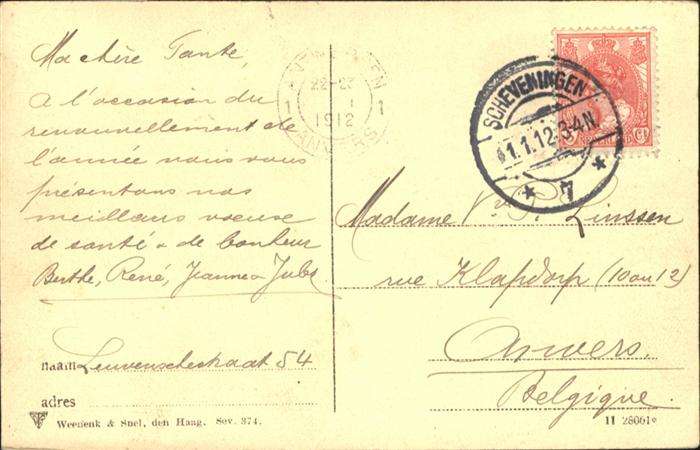 Ma chère Tante,
A l'occasion du
renouvellement de
l'année nous vous
présentons nos
meilleurs voeux
de santé & de bonheur
Berthe, René, Jeanne & Jules
naam Leuvenschestraat 54
adres
Weenenk & Snel, den Haag. Sev. 374.
ANTWERPEN
1912
ANVERS
SCHEVENINGEN
1.1.12 3-4N
7
Madame Ve P. Linssen
rue Klapdorp (10 ou 12)
Anvers.
Belgique.
11 28061e